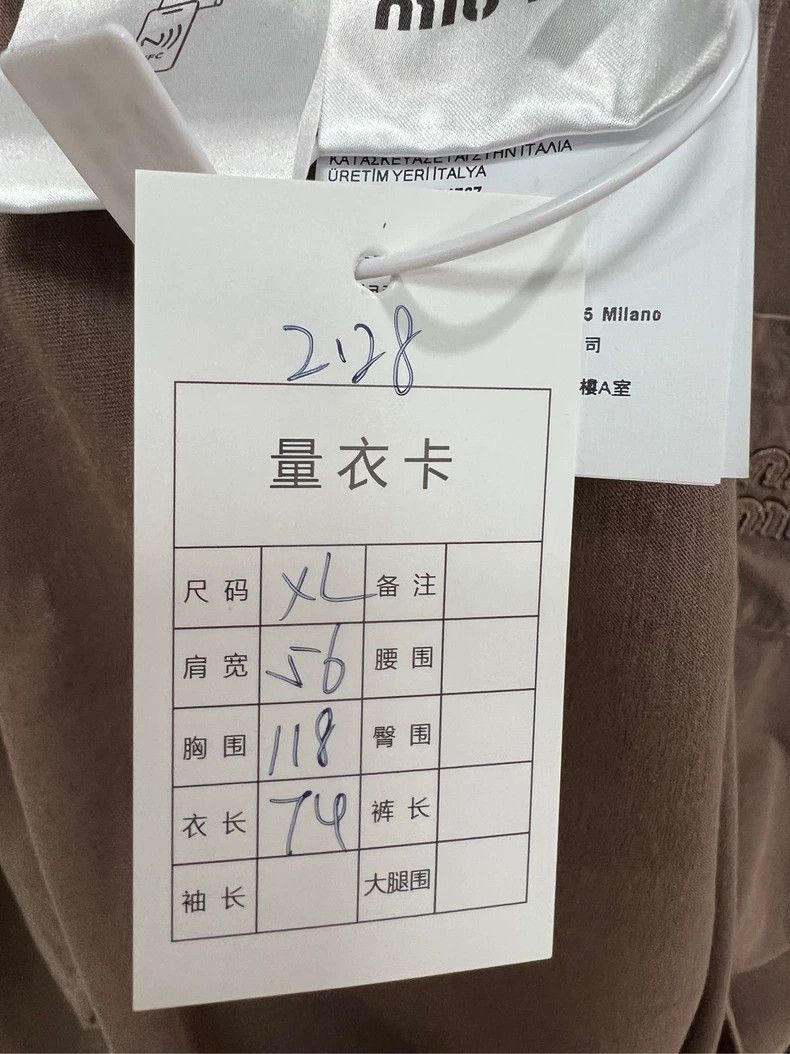 ΚΑΤΑΣΚΕΥΑΖΕΤΑΙ ΣΤΗΝ ΙΤΑΛΙΑ
ÜRETİM YERİ İTALYA
5 Milano
司
樓A室
2.28
量衣卡
尺码 XL 备注
肩宽 56 腰围
胸围 118 臀围
衣长 74 裤长
袖长 大腿围